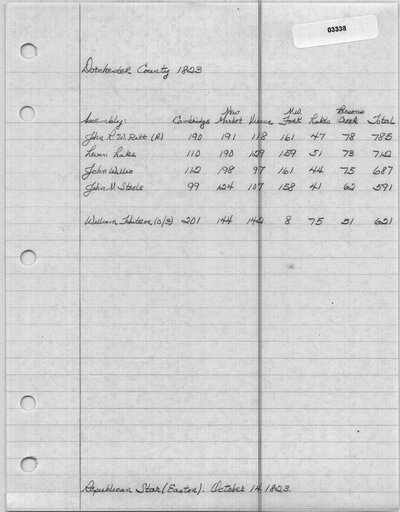 03338
Dorchester County 1823
New N.W. Parsons
Assembly: Cambridge Market Vienna Fork Lakes Creek Total
John R. W. Pitt (R) 190 191 118 161 47 78 785
Leven Lake 110 190 129 159 51 73 712
John Willis 112 198 97 161 44 75 687
John N. Steele 99 124 107 158 41 62 591
William 201 144 142 8 75 51 621
Republican Star (Easton). October 14, 1823.